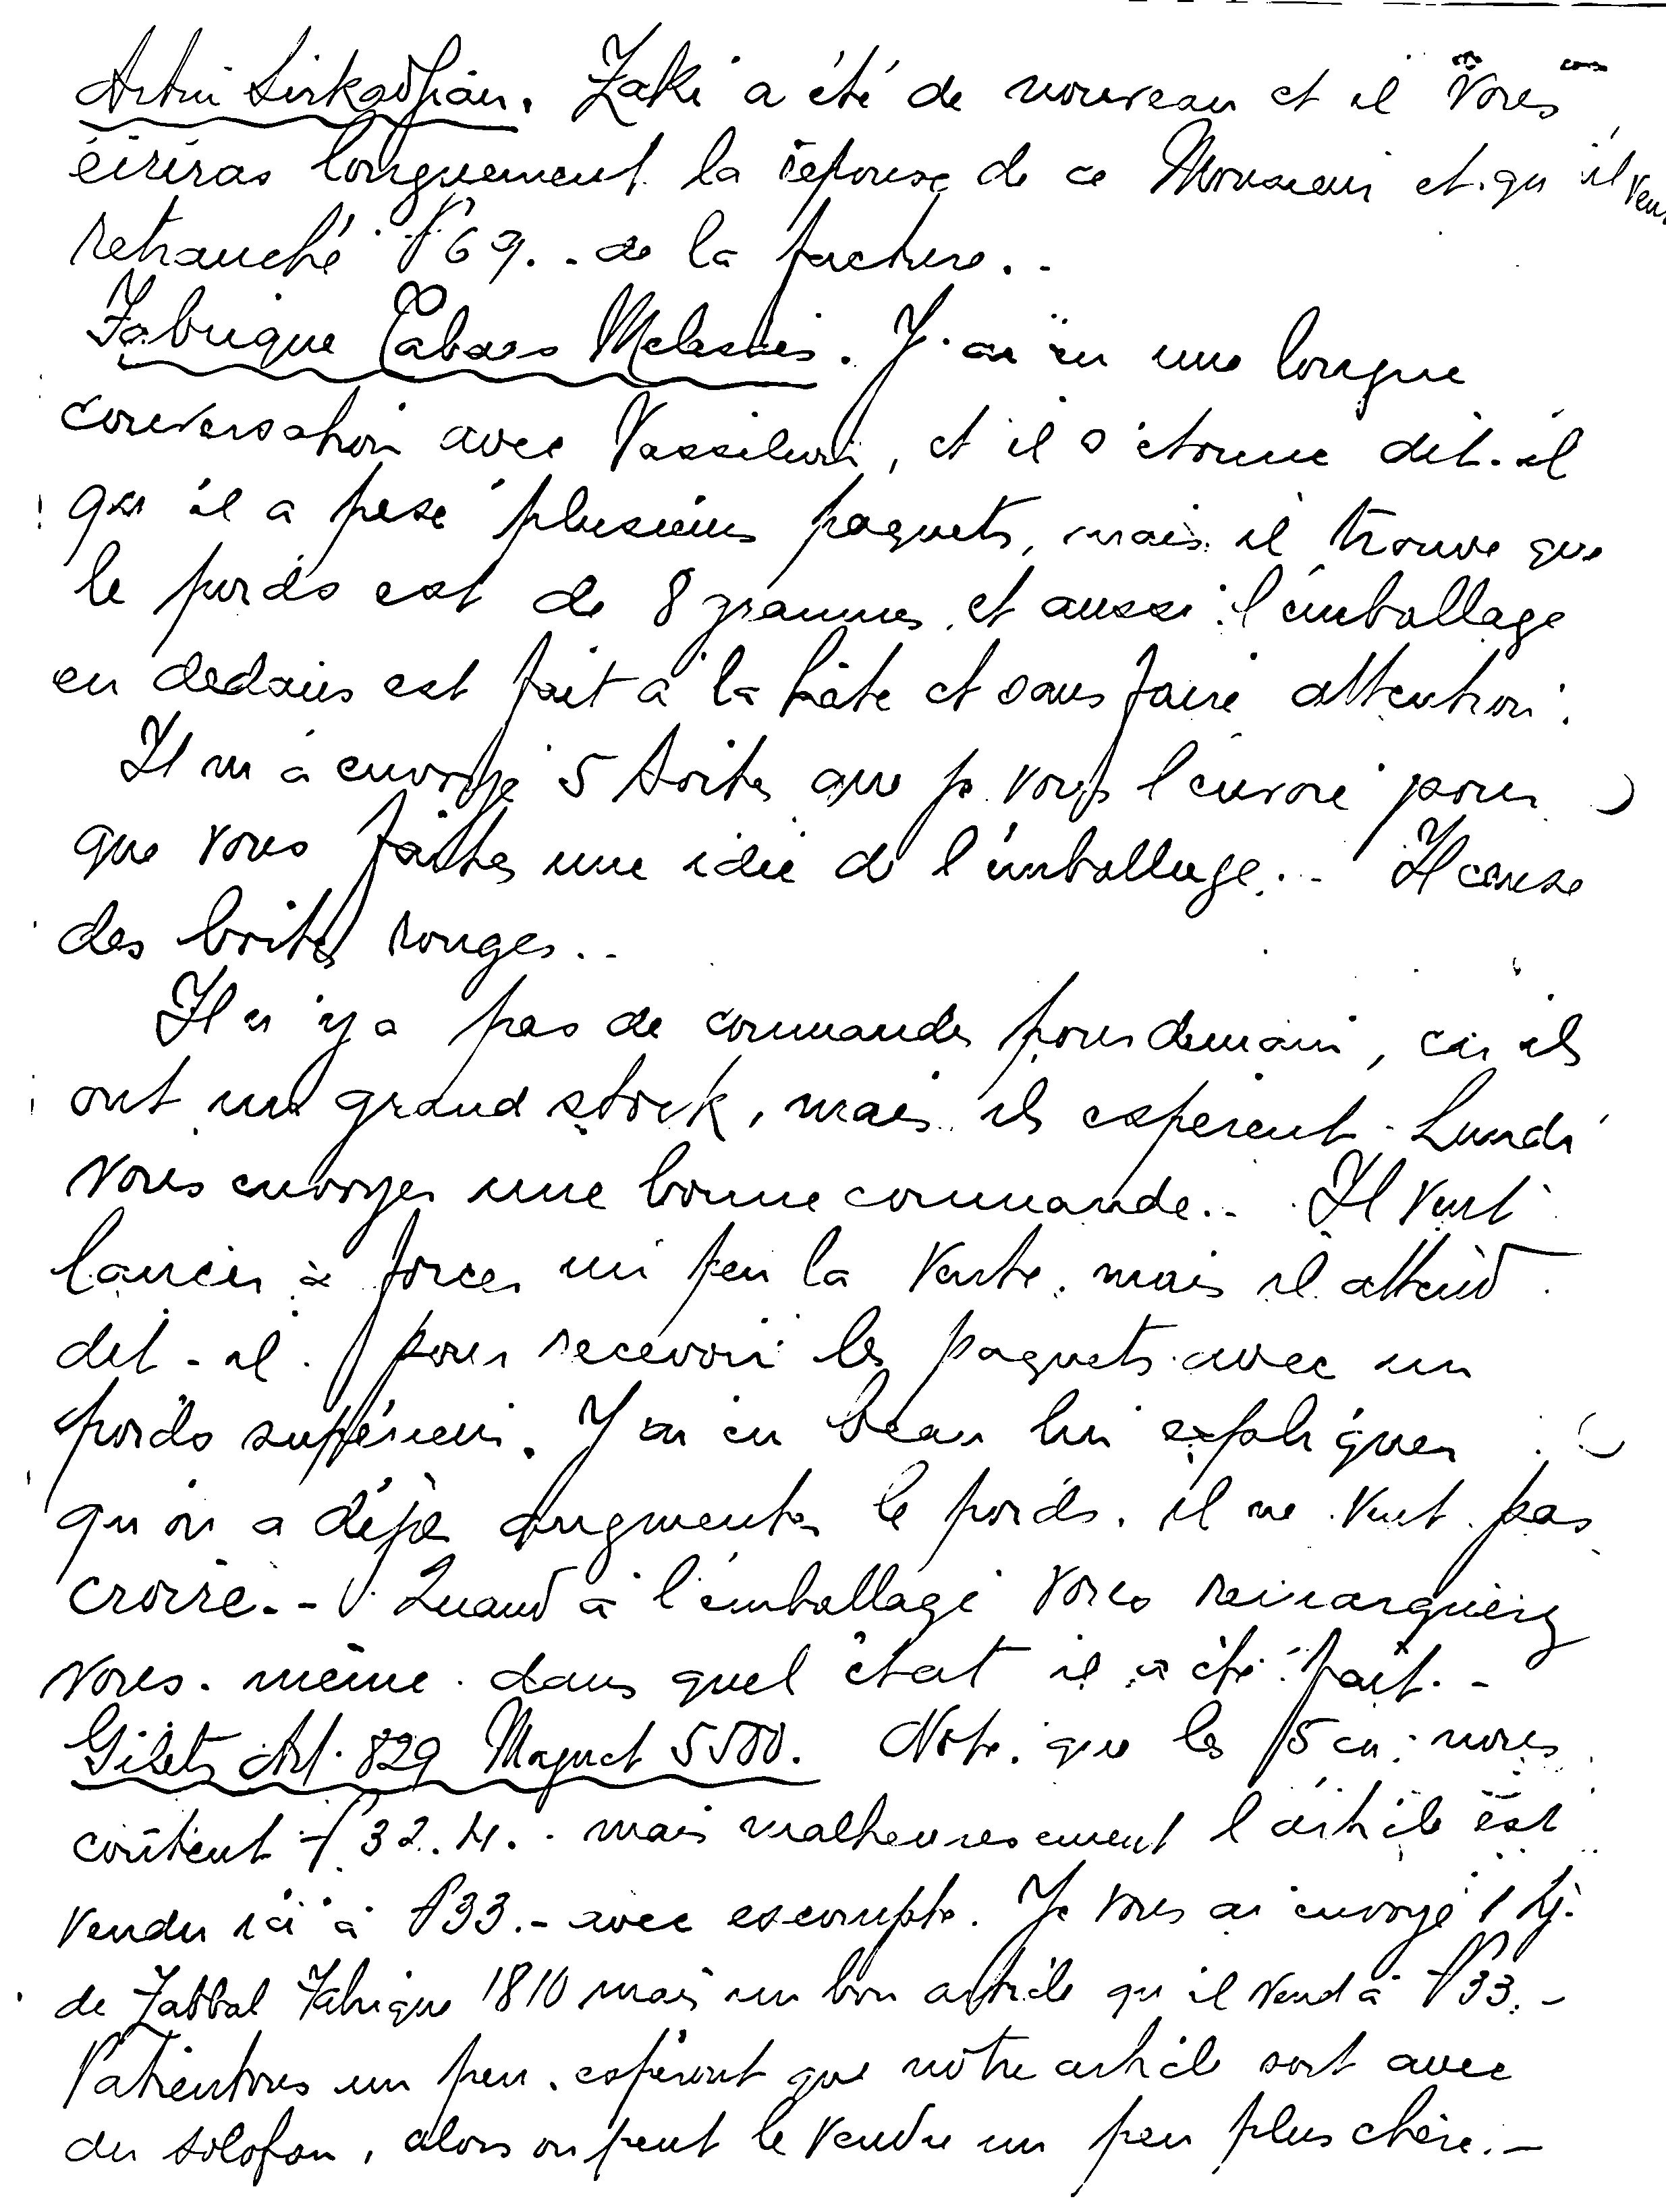 Artin Sirkadjian. Zaki a été de nouveau et il vous
éiriras longuement la réponse de ce Monsieur et qu'il veut
retranché P69.- de la facture..
Fabrique Tabacs Melachis. J'ai eu une longue
conversation avec Vassiliou, et il s'étonne dit-il
qu'il a pesé plusieurs paquets, mais il trouve que
le poids est de 8 grammes et aussi l'emballage
en dedans est fait à la hâte et sans faire attention.
Il m'a envoyé 5 boites que je vous l'envoie pour
que vous faites une idée de l'emballage.- Il cause
des boites rouges..
Il n'y a pas de commandes pour demain, car ils
ont un grand stock, mais ils espèrent Lundi
vous envoyer une bonne commande.. Il veut
lancer à forcer un peu la vente, mais il attend
dit-il pour recevoir les paquets avec un
poids supérieur. J'ai eu beau lui expliquer
qu'on a déjà augmenter le poids, il ne veut pas
croire.- Quand à l'emballage vous remarquerez
vous-même dans quel état il a été fait.-
Gilets Art. 829 Maguet 5500. Note que les 15 cm. nous
coûtent P32.4.- mais malheureusement l'article est
vendu ici à P33.- avec escompte. Je vous ai envoyé 1 Dz.
de Jabbal Fabrique 1810 mais un bon article qu'il vend à P33.-
Patientons un peu, espéront que nôtre article sort avec
du solofan, alors on peut le vendre un peu plus chère.-